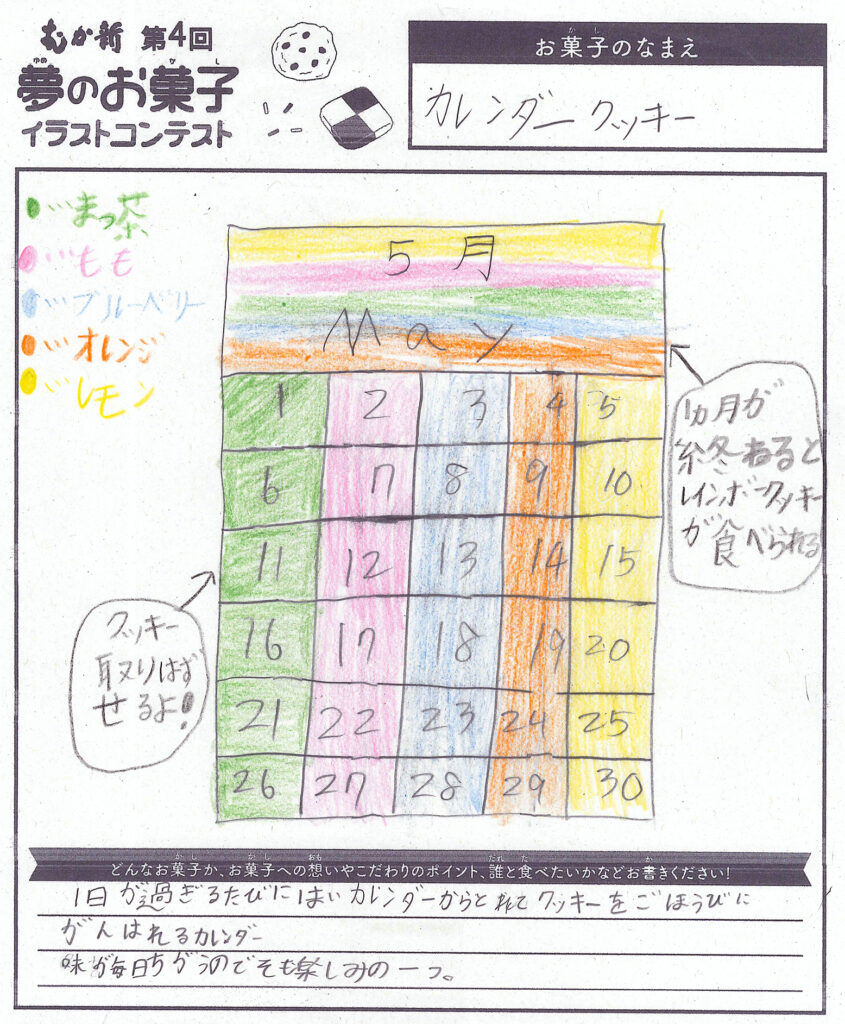 むか新 第4回
夢のお菓子
ゆめ か し
イラストコンテスト
お菓子のなまえ
か し
カレンダークッキー
●…まっ茶
●…もも
●…ブルーベリー
●…オレンジ
●…レモン
5月
May
1 2 3 4 5
6 7 8 9 10
11 12 13 14 15
16 17 18 19 20
21 22 23 24 25
26 27 28 29 30
1カ月が
終ねると
レインボークッキー
が食べられる
クッキー
取りはず
せるよ!
どんなお菓子か、お菓子への想いやこだわりのポイント、誰と食べたいかなどお書きください!
か し か し おも だれ た か
1日が過ぎるたびに カレンダーからとれてクッキーをごほうびに
がんはれるカレンダー
味が毎日ちがうのでそも楽しみの一つ。